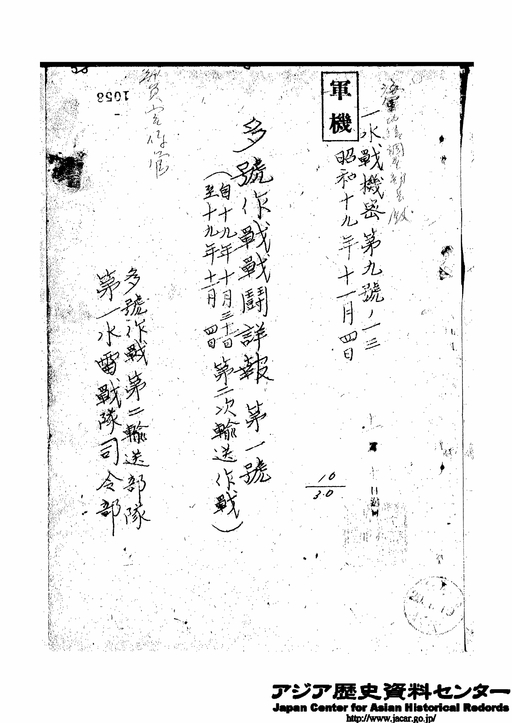 軍機
一水戦機密第九號ノ一三
昭和十九年十一月四日
多號作戦戦闘詳報 第一號
(自十九年十月三十日
至十九年十一月四日 第二次輸送作戦)
多號作戦第二輸送部隊
第一水雷戦隊司令部
1053
10
30
アジア歴史資料センター
Japan Center for Asian Historical Records
http://www.jacar.go.jp/